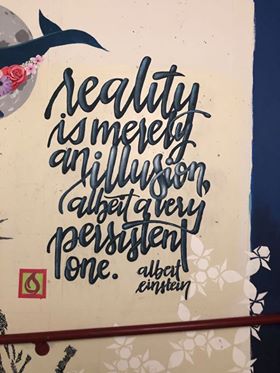 reality
is merely
an illusion,
albeit a very
persistent
one.
albert
einstein